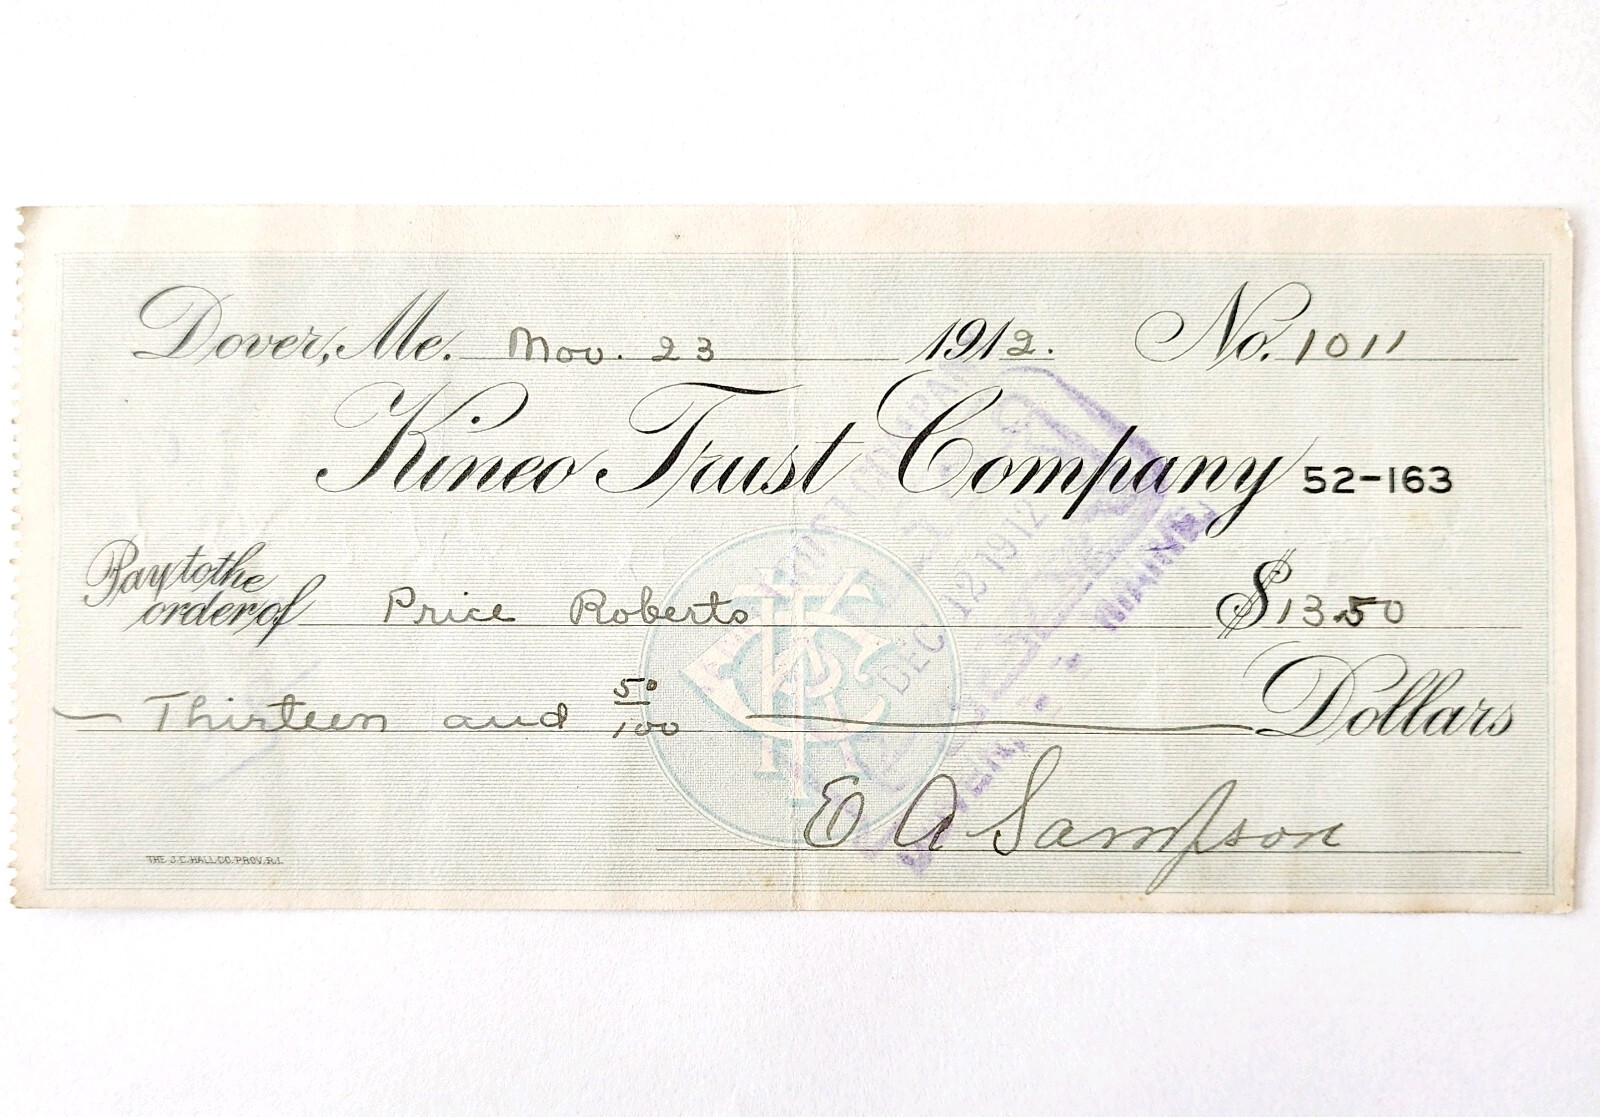 Dover, Me. Nov. 23 1912. No. 1011
Kineo Trust Company 52-163
Pay to the
order of Price Roberts $13.50
Thirteen and 50/100 Dollars
E A Sampson
THE J.C. HALL CO. PROV. R.I.
DEC 12 1912